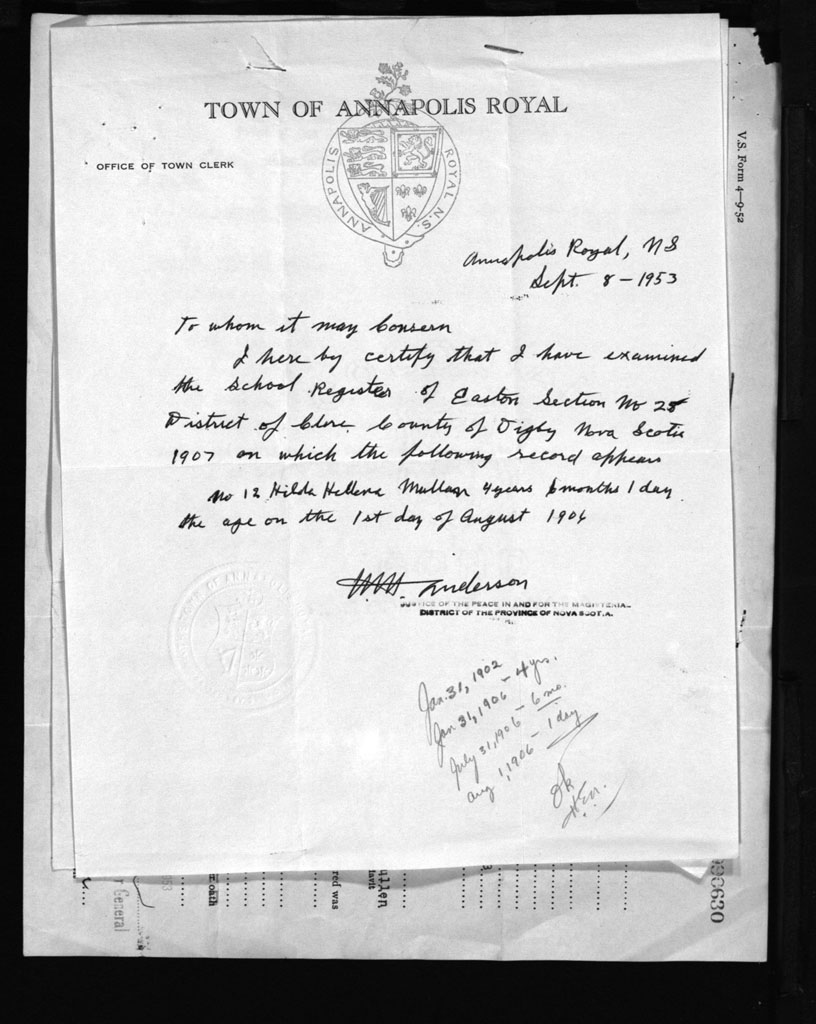 TOWN OF ANNAPOLIS ROYAL
OFFICE OF TOWN CLERK
ANNAPOLIS ROYAL N.S.
V.S. Form 4-9-52
Annapolis Royal, NS
Sept. 8-1953
To whom it may Consern
I here by certify that I have examined
the School Register of Easton Section No 25
District of Clare County of Digby Nova Scotia
1907 on which the following record appears
No 12 Hilda Hellena Mullan 4 years 6 months 1 day
the age on the 1st day of August 1906
Anderson
JUSTICE OF THE PEACE IN AND FOR THE MAGISTERIAL
DISTRICT OF THE PROVINCE OF NOVA SCOTIA.
Jan. 31, 1902
Jan 31, 1906 - 4 yrs.
July 31, 1906 - 6 mo.
Aug 1, 1906 - 1 day
OK
r General
oath
red was
ullen
davit
96630